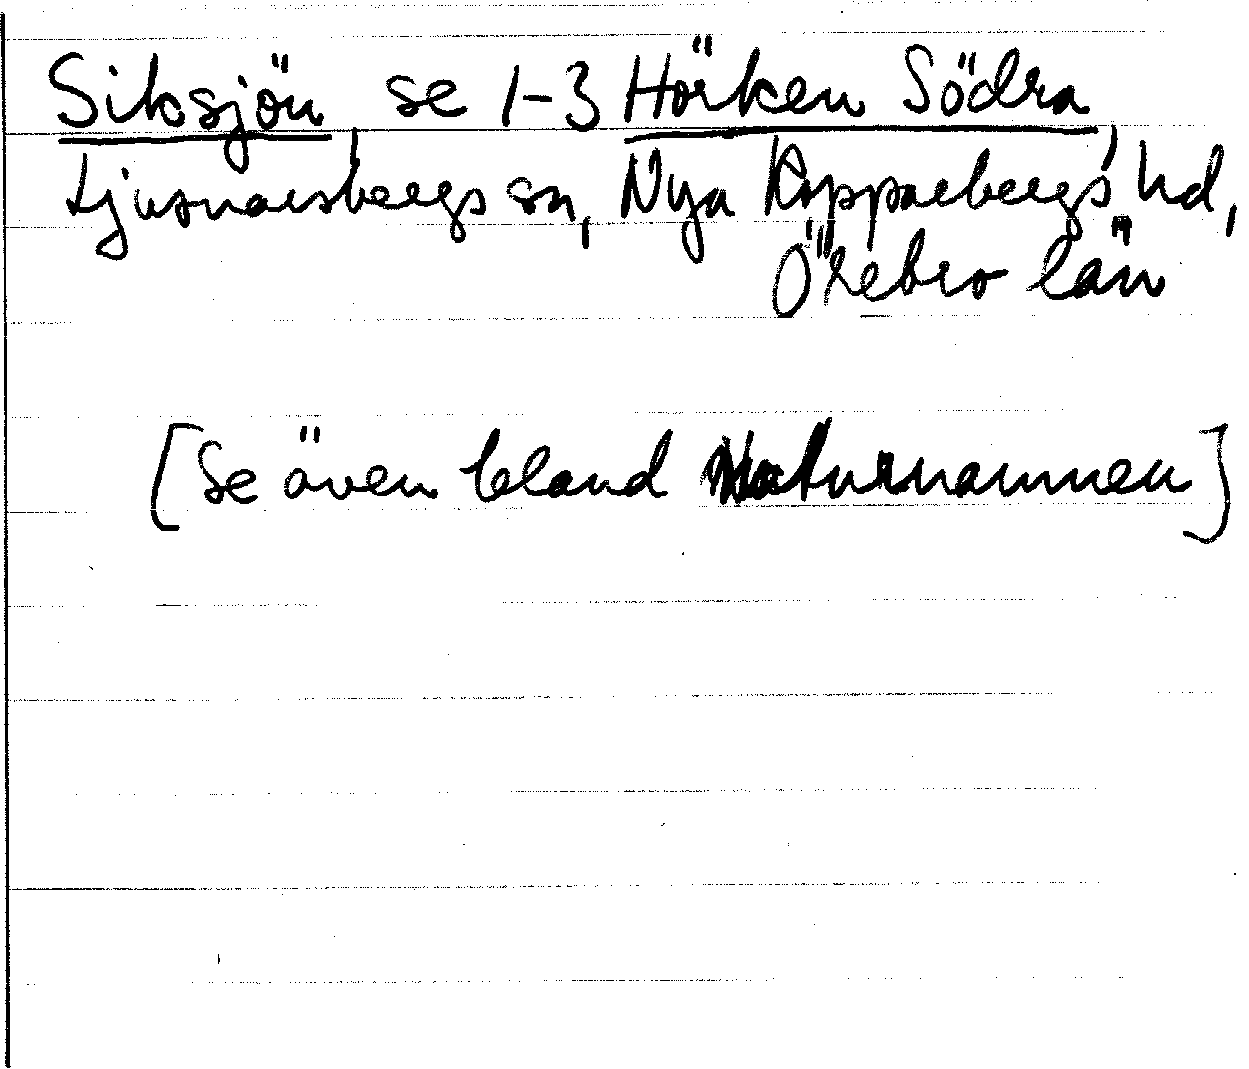 Siksjön, se 1-3 Hörken Södra,
Ljusnarsbergs sn, Nya Kopparbergs hd,
Örebro län
[Se även bland Naturnamnen]